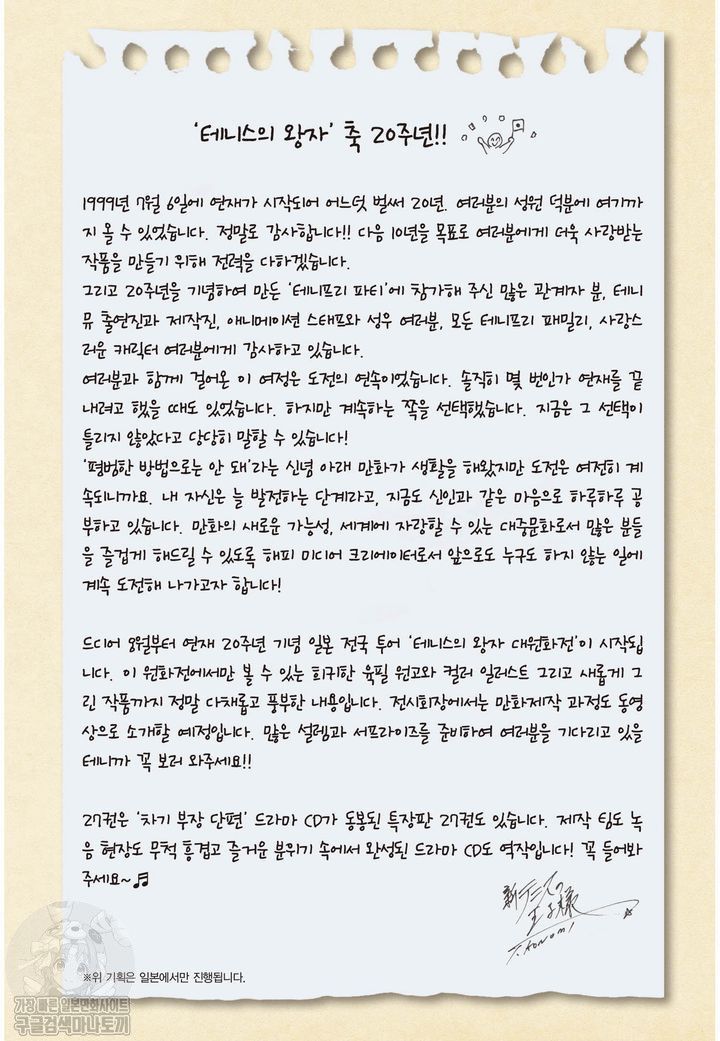 '테니스의 왕자' 축 20주년!!
1999년 7월 6일에 연재가 시작되어 어느덧 벌써 20년. 여러분의 성원 덕분에 여기까
지 올 수 있었습니다. 정말로 감사합니다!! 다음 10년을 목표로 여러분에게 더욱 사랑받는
작품을 만들기 위해 전력을 다하겠습니다.
그리고 20주년을 기념하여 만든 '테니프리 파티'에 참가해 주신 많은 관계자 분, 테니
뮤 출연진과 제작진, 애니메이션 스태프와 성우 여러분, 모든 테니프리 패밀리, 사랑스
러운 캐릭터 여러분에게 감사하고 있습니다.
여러분과 함께 걸어온 이 여정은 도전의 연속이었습니다. 솔직히 몇 번인가 연재를 끝
내려고 했을 때도 있었습니다. 하지만 계속하는 쪽을 선택했습니다. 지금은 그 선택이
틀리지 않았다고 당당히 말할 수 있습니다!
'평범한 방법으로는 안 돼'라는 신념 아래 만화가 생활을 해왔지만 도전은 여전히 계
속되니까요. 내 자신은 늘 발전하는 단계라고, 지금도 신인과 같은 마음으로 하루하루 공
부하고 있습니다. 만화의 새로운 가능성, 세계에 자랑할 수 있는 대중문화로서 많은 분들
을 즐겁게 해드릴 수 있도록 해피 미디어 크리에이터로서 앞으로도 누구도 하지 않는 일에
계속 도전해 나가고자 합니다!
드디어 8월부터 연재 20주년 기념 일본 전국 투어 '테니스의 왕자 대원화전'이 시작됩
니다. 이 원화전에서만 볼 수 있는 희귀한 육필 원고와 컬러 일러스트 그리고 새롭게 그
린 작품까지 정말 다채롭고 풍부한 내용입니다. 전시회장에서는 만화제작 과정도 동영
상으로 소개할 예정입니다. 많은 설렘과 서프라이즈를 준비하여 여러분을 기다리고 있을
테니까 꼭 보러 와주세요!!
27권은 '차기 부장 단편' 드라마 CD가 동봉된 특장판 27권도 있습니다. 제작 팀도 녹
음 현장도 무척 흥겹고 즐거운 분위기 속에서 완성된 드라마 CD도 역작입니다! 꼭 들어봐
주세요~♬
新テニスの
王子様
T.KONOMI
※위 기획은 일본에서만 진행됩니다.
가장 빠른 일본만화사이트
구글검색마나토끼